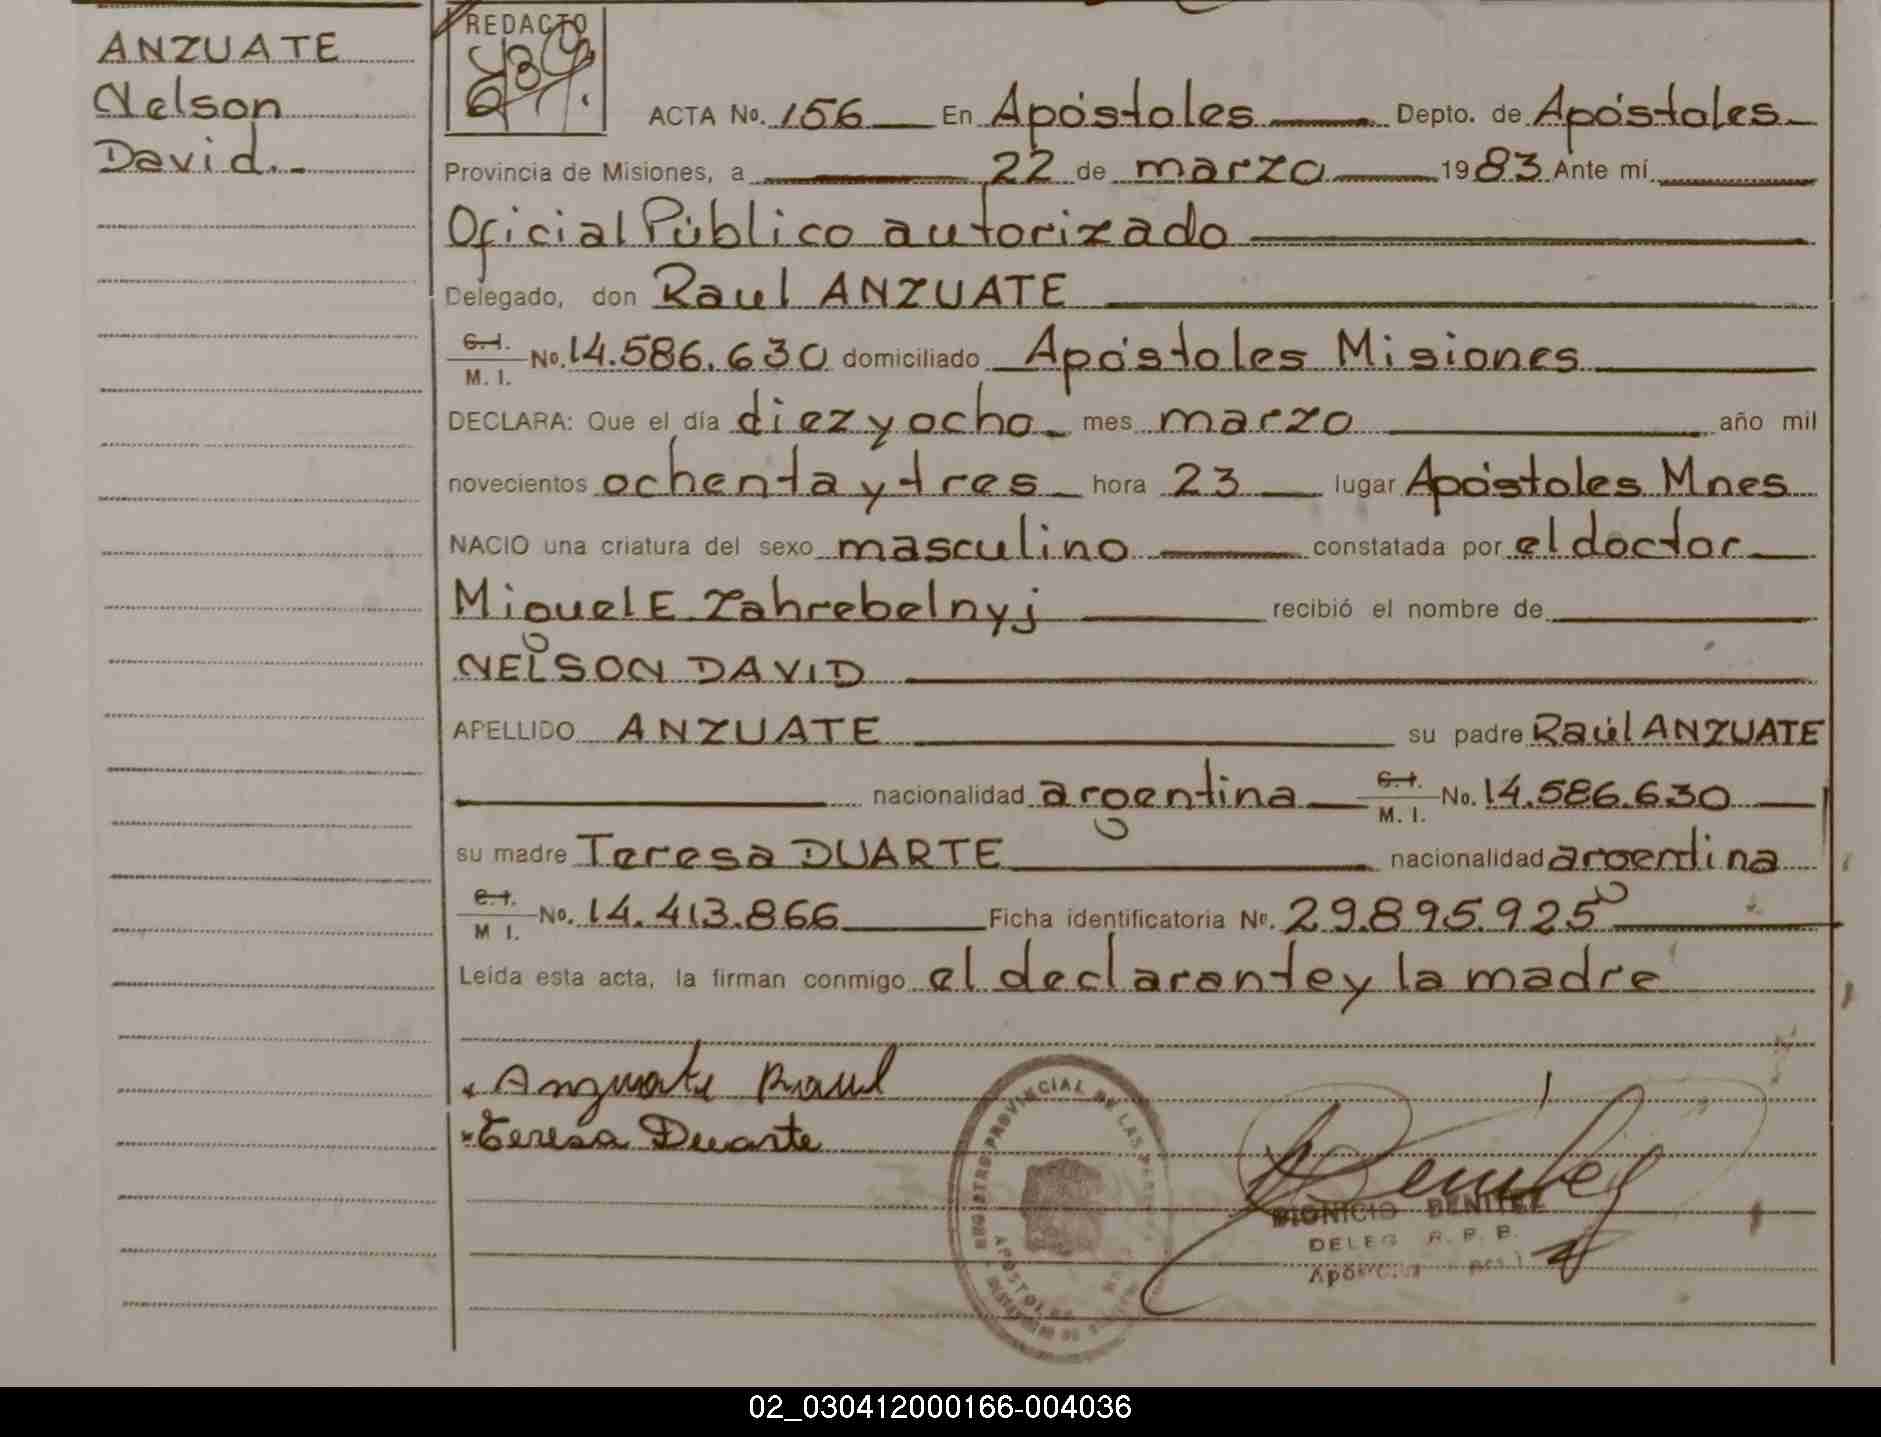 ANZUATE
Nelson
David.
REDACTO
ACTA No. 156 En Apóstoles Depto. de Apóstoles
Provincia de Misiones, a 22 de marzo 1983 Ante mí
Oficial Público autorizado
Delegado, don Raul ANZUATE
C.I. M. I. No. 14.586.630 domiciliado Apóstoles Misiones
DECLARA: Que el día diez y ocho mes marzo año mil
novecientos ochenta y tres hora 23 lugar Apóstoles Mnes
NACIO una criatura del sexo masculino constatada por el doctor
Miguel E. Zahrebelnyj recibió el nombre de
NELSON DAVID
APELLIDO ANZUATE su padre Raúl ANZUATE
nacionalidad argentina C.I. M. I. No. 14.586.630
su madre Teresa DUARTE nacionalidad argentina
C.I. M I. No. 14.413.866 Ficha identificatoria No. 29.895.925
Leída esta acta, la firman conmigo el declarante y la madre
Anzuate Raul
Teresa Duarte
REGISTRO PROVINCIAL DE LAS
APOSTOLES
DIONICIO BENITEZ
DELEG R. P. P.
02_030412000166-004036